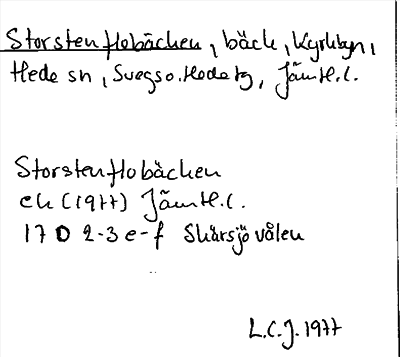 Storstenflobäcken, bäck, Kyrkbyn,
Hede sn, Svegs o. Hede tg, Jämtl. l.
Storstenflobäcken
ek (1977) Jämtl. l.
17 D 2-3 e-f Skärsjövålen
L.C.J. 1977